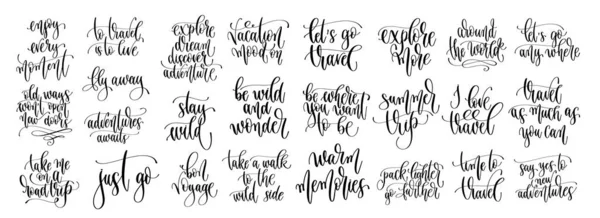 enjoy
every
moment
old ways
won't open
new doors
take me
on a
road trip
to travel
is to live
fly away
adventures
awaits
just go
explore
dream
discover
adventure
stay
wild
bon
voyage
vacation
mood on
be wild
and
wonder
take a walk
to the
wild side
let's go
travel
be where
you want
to be
warm
memories
explore
more
summer
trip
pack lighter
go farther
around
the world
I love
travel
time to
travel
let's go
any where
travel
as much as
you can
say yes to
new
adventures